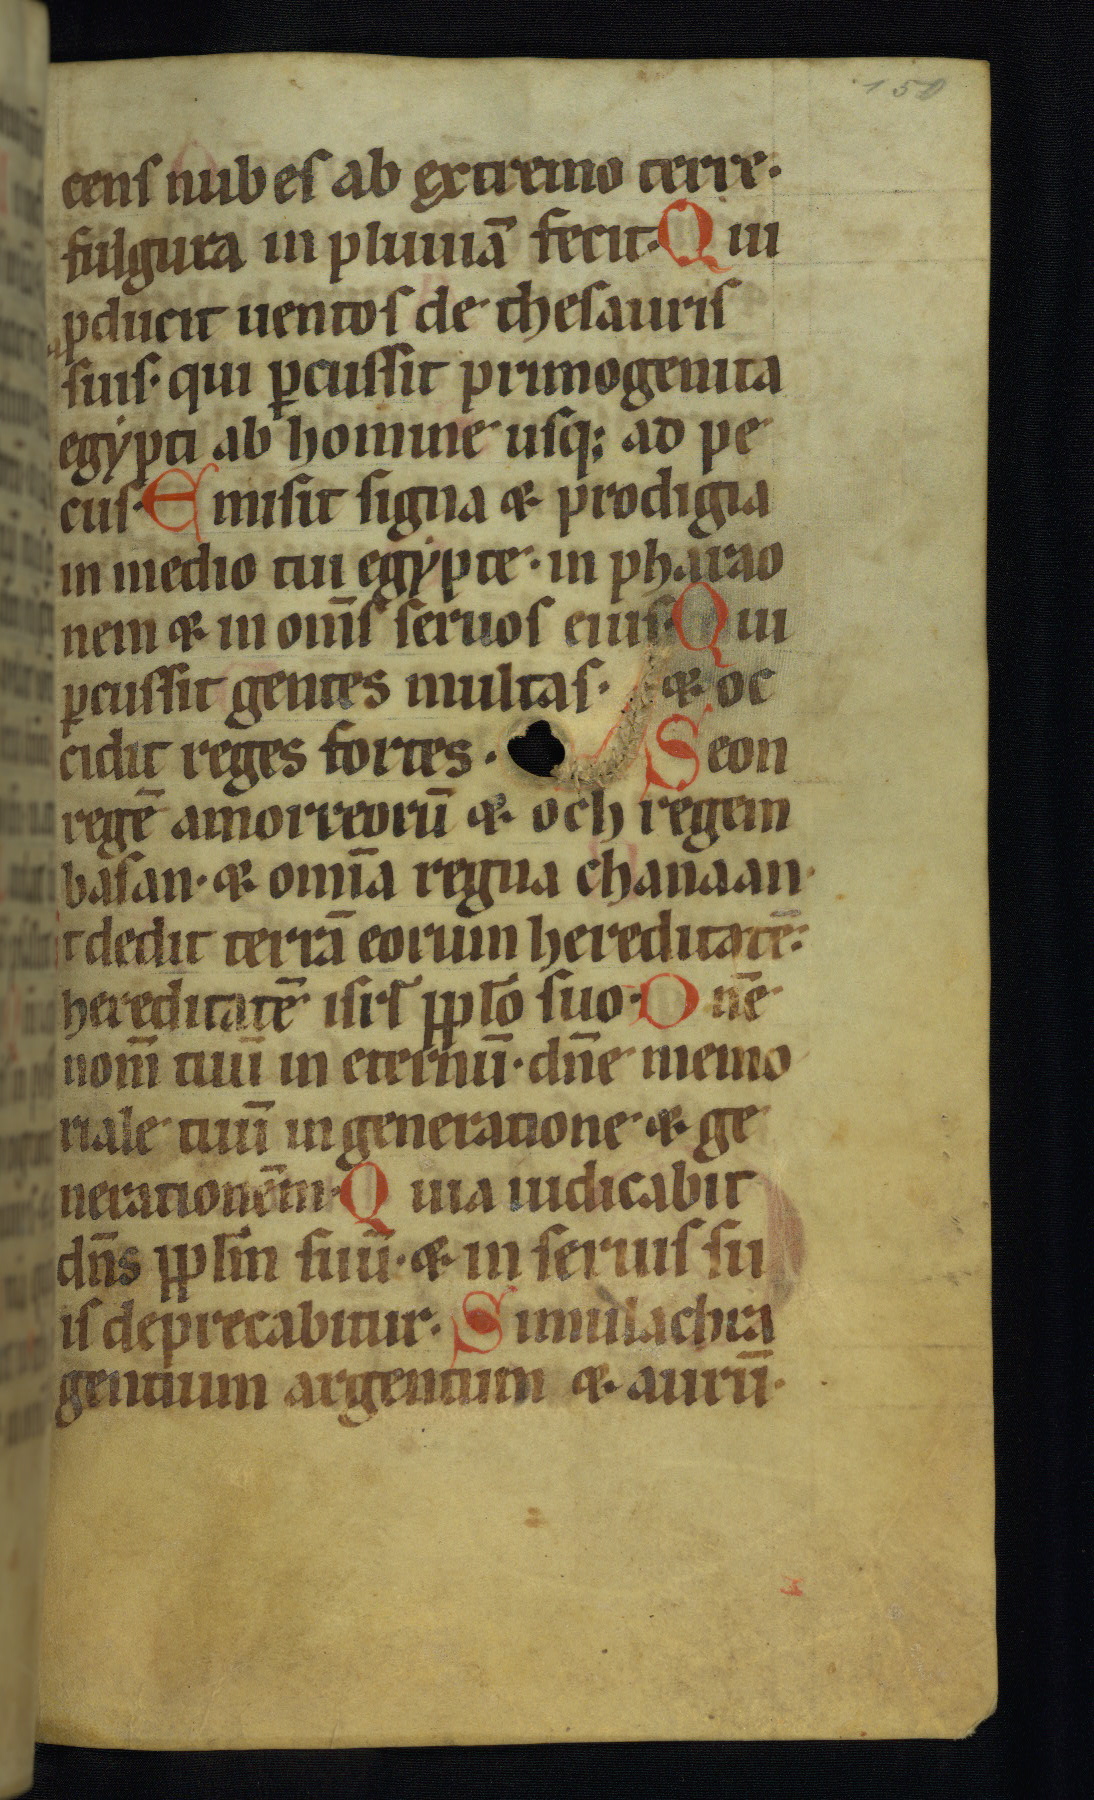 150
cens nubes ab extremo terre.
fulgura in pluuiā fecit. Qui
ꝓducit uentos de thesauris
suis. qui ꝑcussit primogenita
egypti ab homine usq; ad pe
cus. Emisit signa & prodigia
in medio tui egypte. in pharao
nem & in om̄s seruos eius. Qui
ꝑcussit gentes multas. & oc
cidit reges fortes. Seon
regē amorreorū & och regem
basan. & omīa regna chanaan.
t dedit terrā eorum hereditatē.
hereditatē isrł ppło suo. Dn̄e
nom̄ tuū in eternū. dn̄e memo
riale tuū in generatione & ge
nerationēm. Quia iudicabit
dn̄s pplm̄ suū. & in seruis su
is deprecabitur. Simulachra
gentium argentum & aurū.